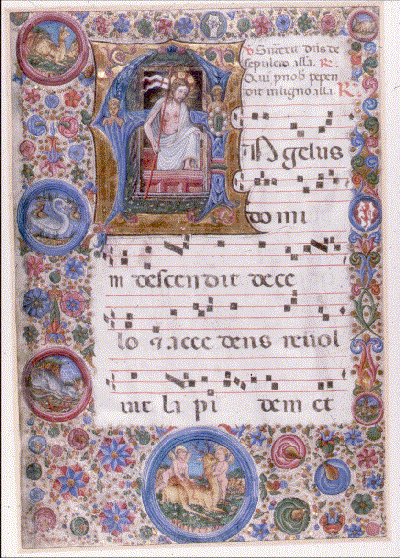 V Surrexit dns de
sepulcro alla. R.
Qui p nob pepen
dit in ligno alla R.
Angelus
domi
ni descendit de ce
lo & acce dens revol
vit la pi dem et